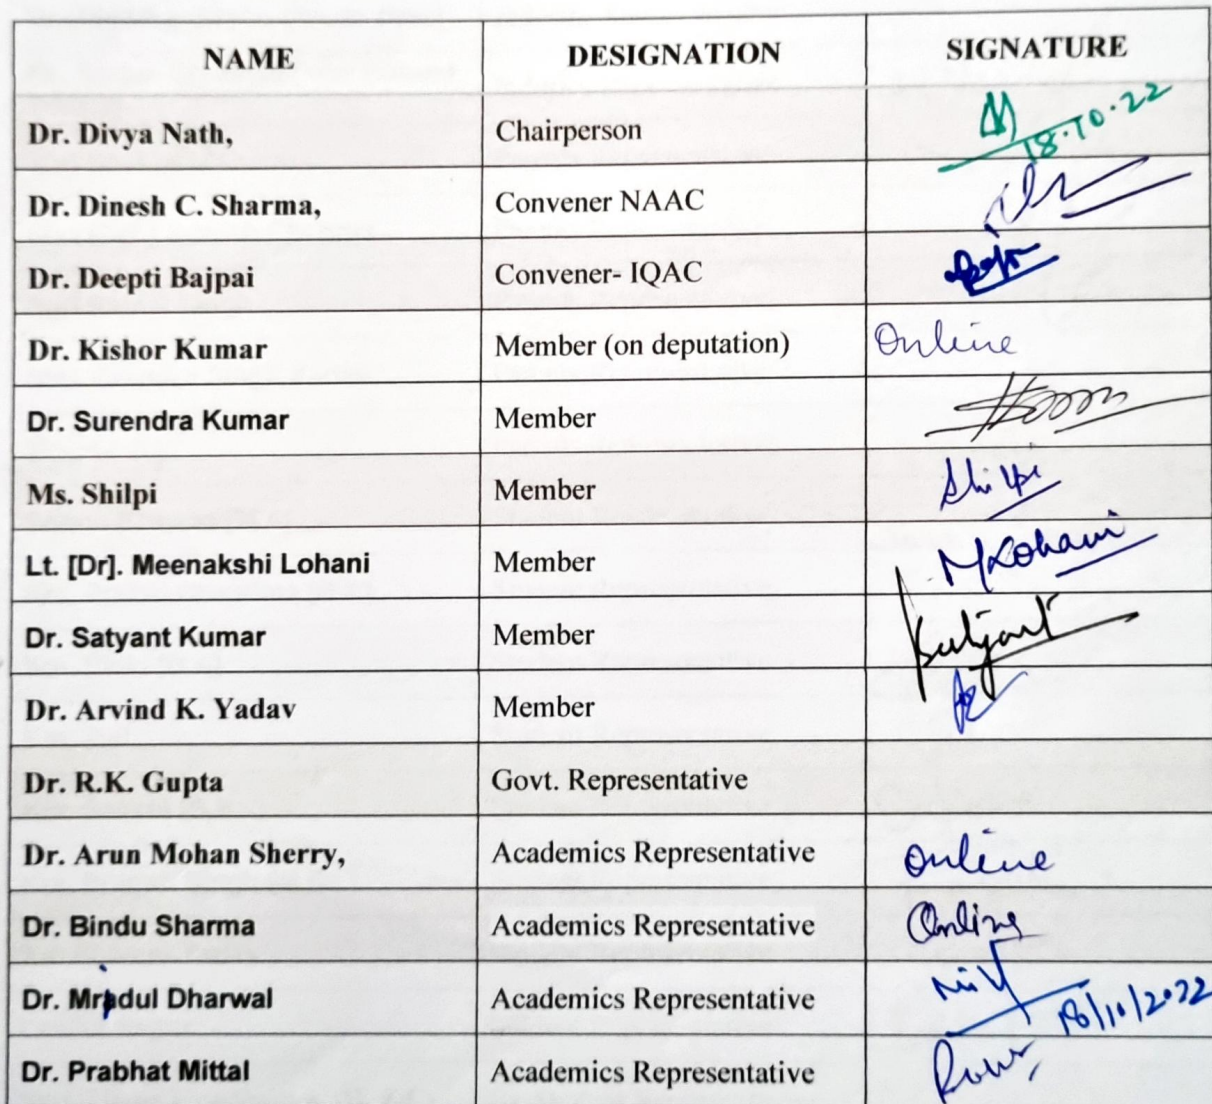 NAME DESIGNATION SIGNATURE
Dr. Divya Nath, Chairperson 18.10.22
Dr. Dinesh C. Sharma, Convener NAAC
Dr. Deepti Bajpai Convener- IQAC
Dr. Kishor Kumar Member (on deputation) Online
Dr. Surendra Kumar Member
Ms. Shilpi Member Shilpi
Lt. [Dr]. Meenakshi Lohani Member MKohani
Dr. Satyant Kumar Member
Dr. Arvind K. Yadav Member
Dr. R.K. Gupta Govt. Representative
Dr. Arun Mohan Sherry, Academics Representative Online
Dr. Bindu Sharma Academics Representative Online
Dr. Mridul Dharwal Academics Representative 18/10/2022
Dr. Prabhat Mittal Academics Representative